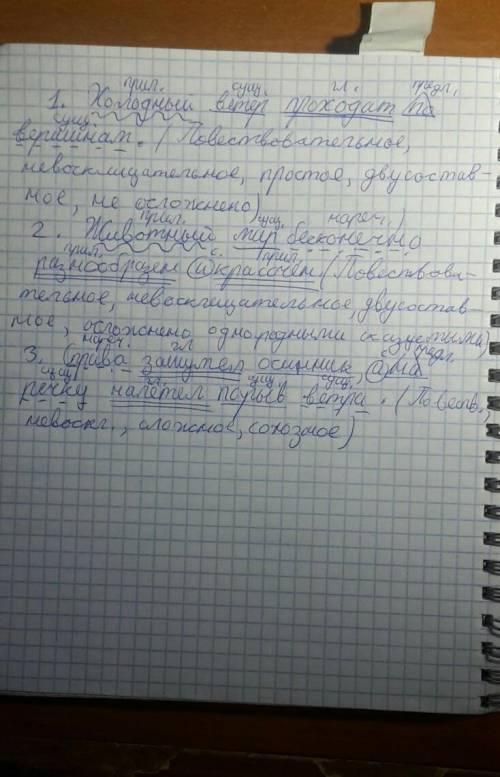 прил. сущ. гл. предл.
1. Холодный ветер проходат по
сущ.
вершинам. (Повествовательное,
невосклицательное, простое, двусостав-
ное, не осложнено)
прил. сущ. нареч.
2. Животный мир бесконечно
прил. с. прил.
разнообразен и красочен (Повествова-
тельное, невосклицательное, двусостав-
ное, осложнено однородными сказуемыми)
нареч. гл. предл.
3. Справа зашумел осинник, и на
сущ. гл. сущ. сущ.
речку налетел порыв ветра. (Повеств.,
невоскл., сложное, союзное)